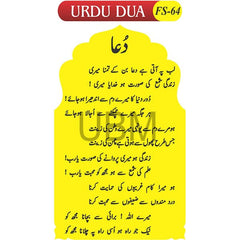 URDU DUA FS-64
دُعا
لب پہ آتی ہے دعا بن کے تمنا میری
زندگی شمع کی صورت ہو خدایا میری
دُور دنیا کا میرے دم سے اندھیرا ہو جائے!
ہر جگہ میرے چمکنے سے اُجالا ہو جائے
ہو مرے دم سے یونہی میرے وطن کی زینت
جس طرح پھول سے ہوتی ہے چمن کی زینت
زندگی ہو میری پروانے کی صورت یارب!
علم کی شمع سے ہو مجھ کو محبت یارب!
ہو میرا کام غریبوں کی حمایت کرنا
درد مندوں سے ضعیفوں سے محبت کرنا
میرے اللہ! برائی سے بچانا مجھ کو
نیک جو راہ ہو اُسی راہ پہ چلانا مجھ کو
UBM